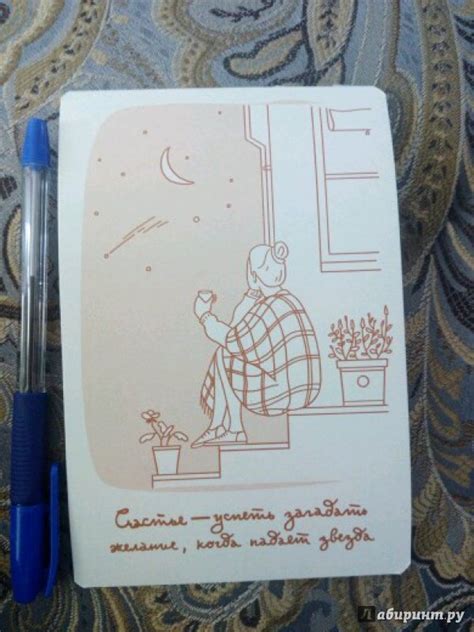 Счастье — успеть загадать
желание, когда падает звезда
Лабиринт.ру